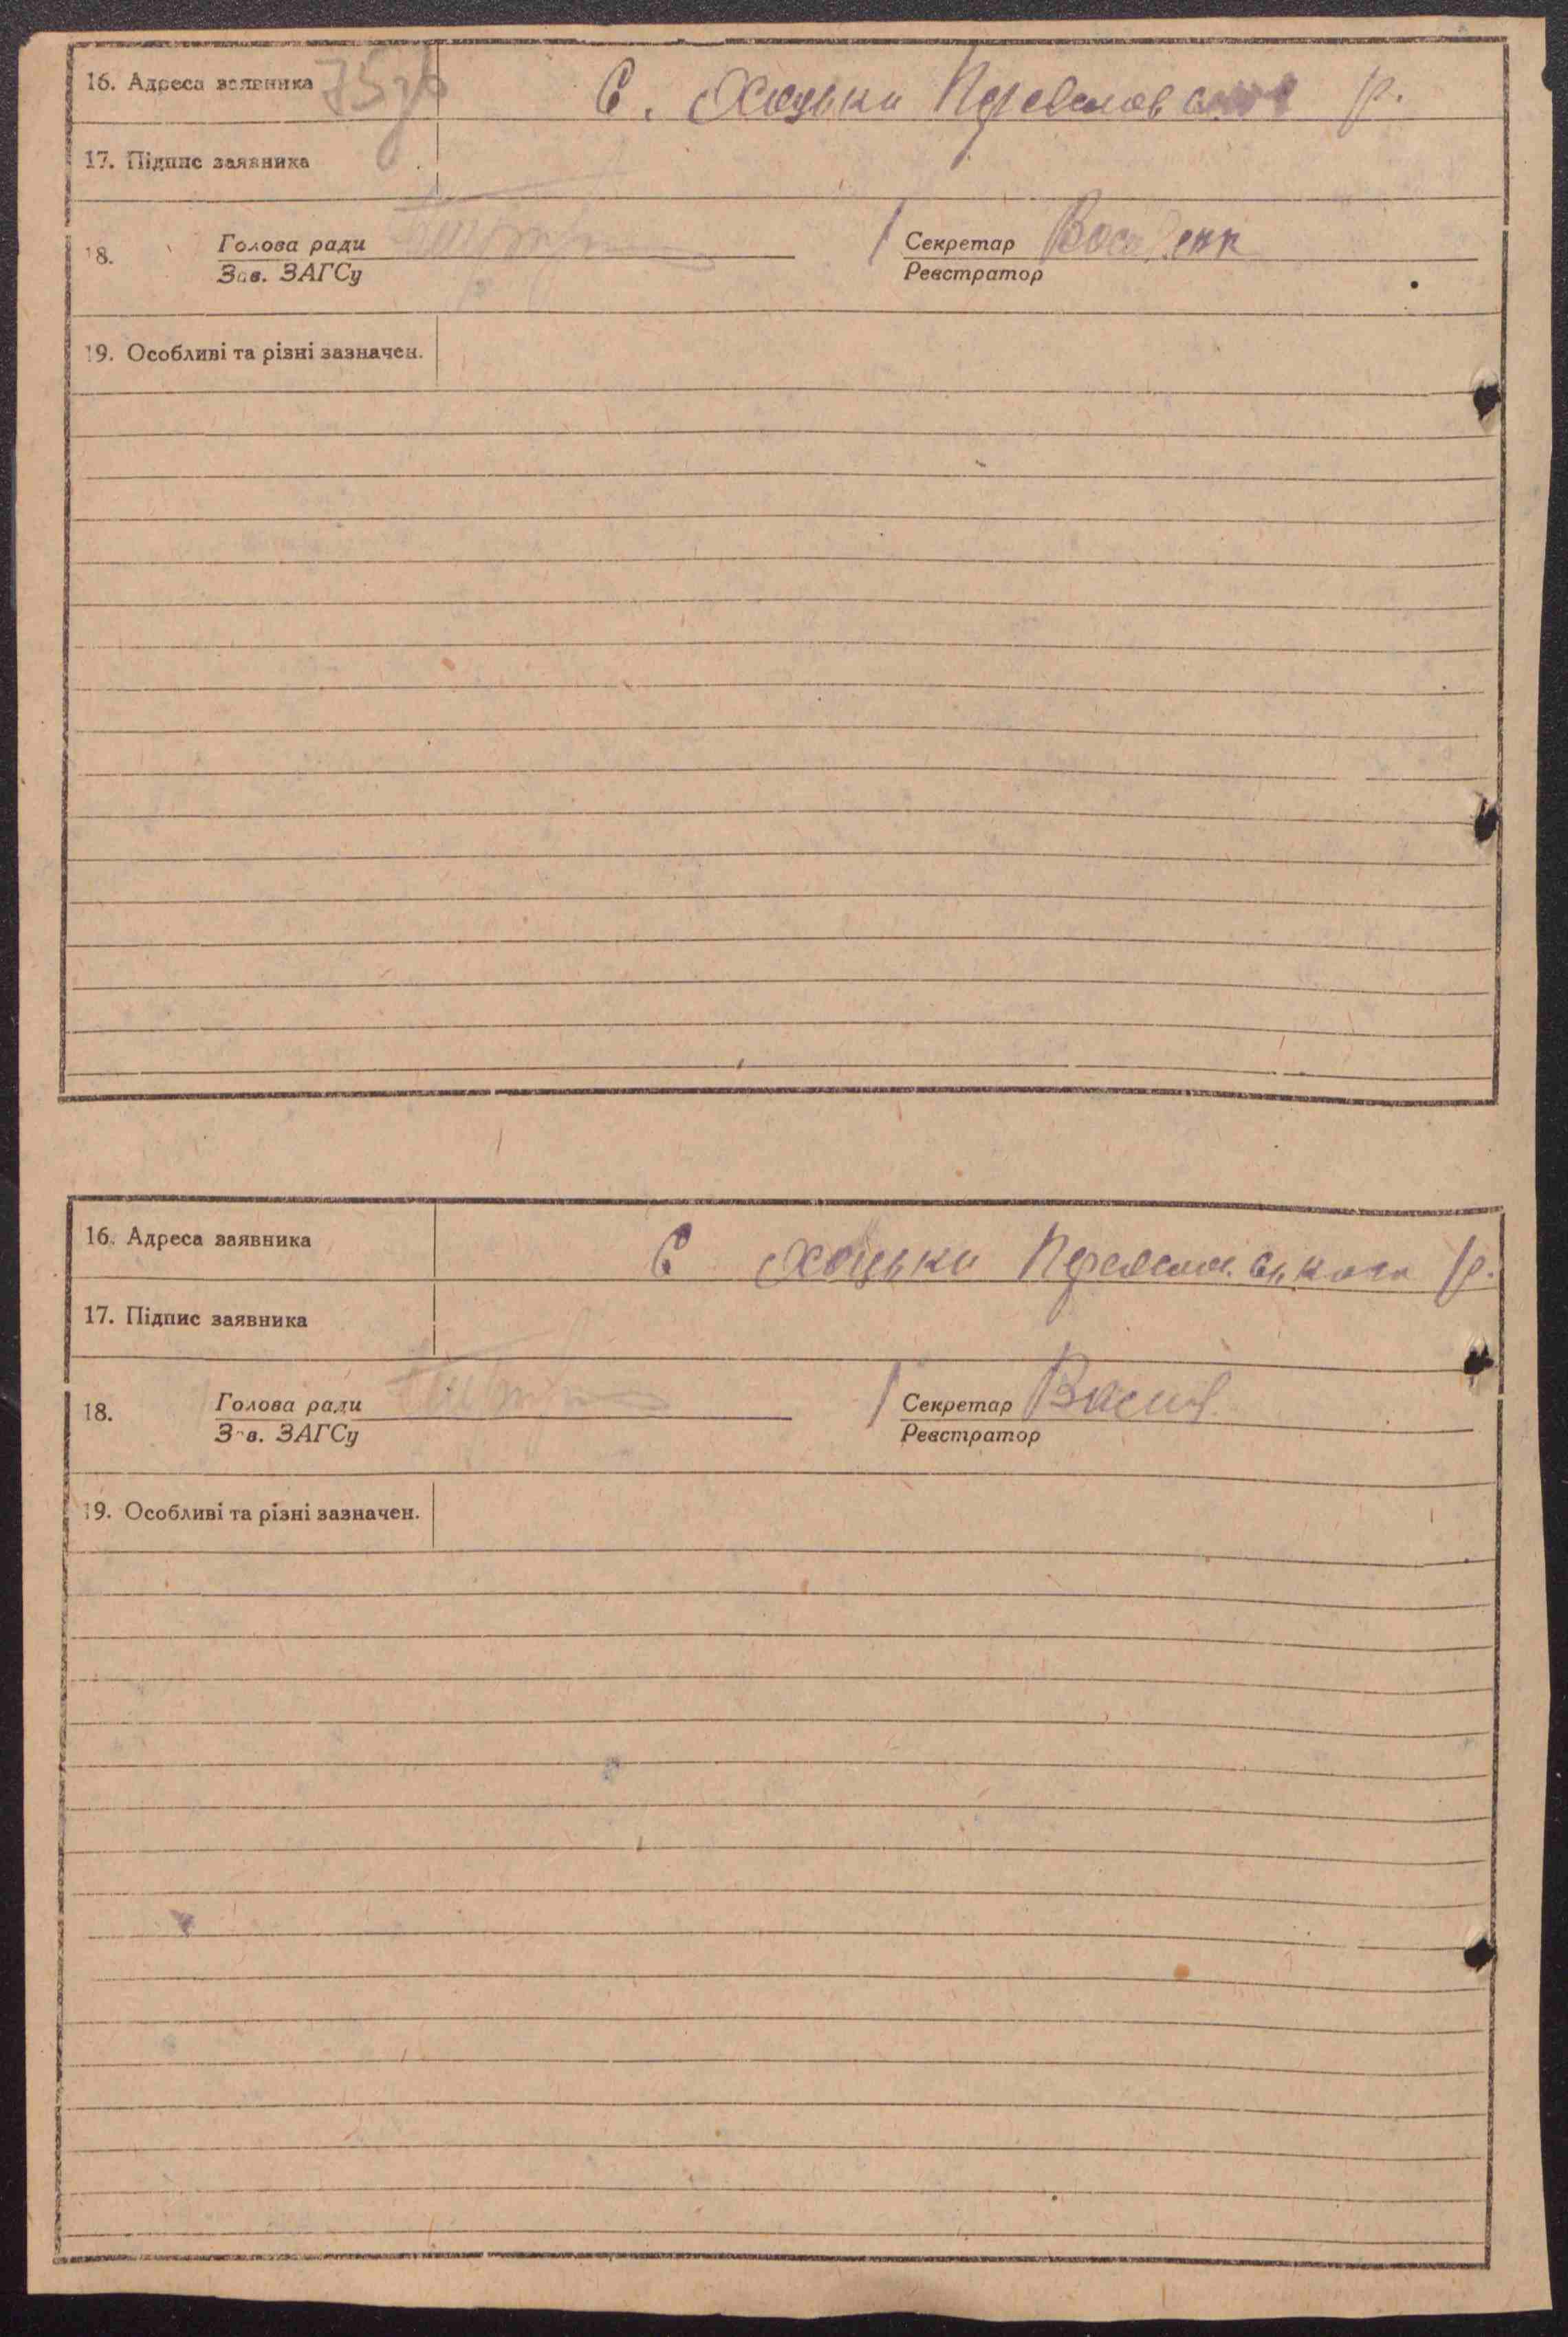 16. Адреса заявника 75зв С. Хоцьки Переяславського р.
17. Підпис заявника
18. Голова ради Секретар
Зав. ЗАГСу Реєстратор
19. Особливі та різні зазначен.
16. Адреса заявника С Хоцьки Переяславського р.
17. Підпис заявника
18. Голова ради Секретар
Зав. ЗАГСу Реєстратор
19. Особливі та різні зазначен.